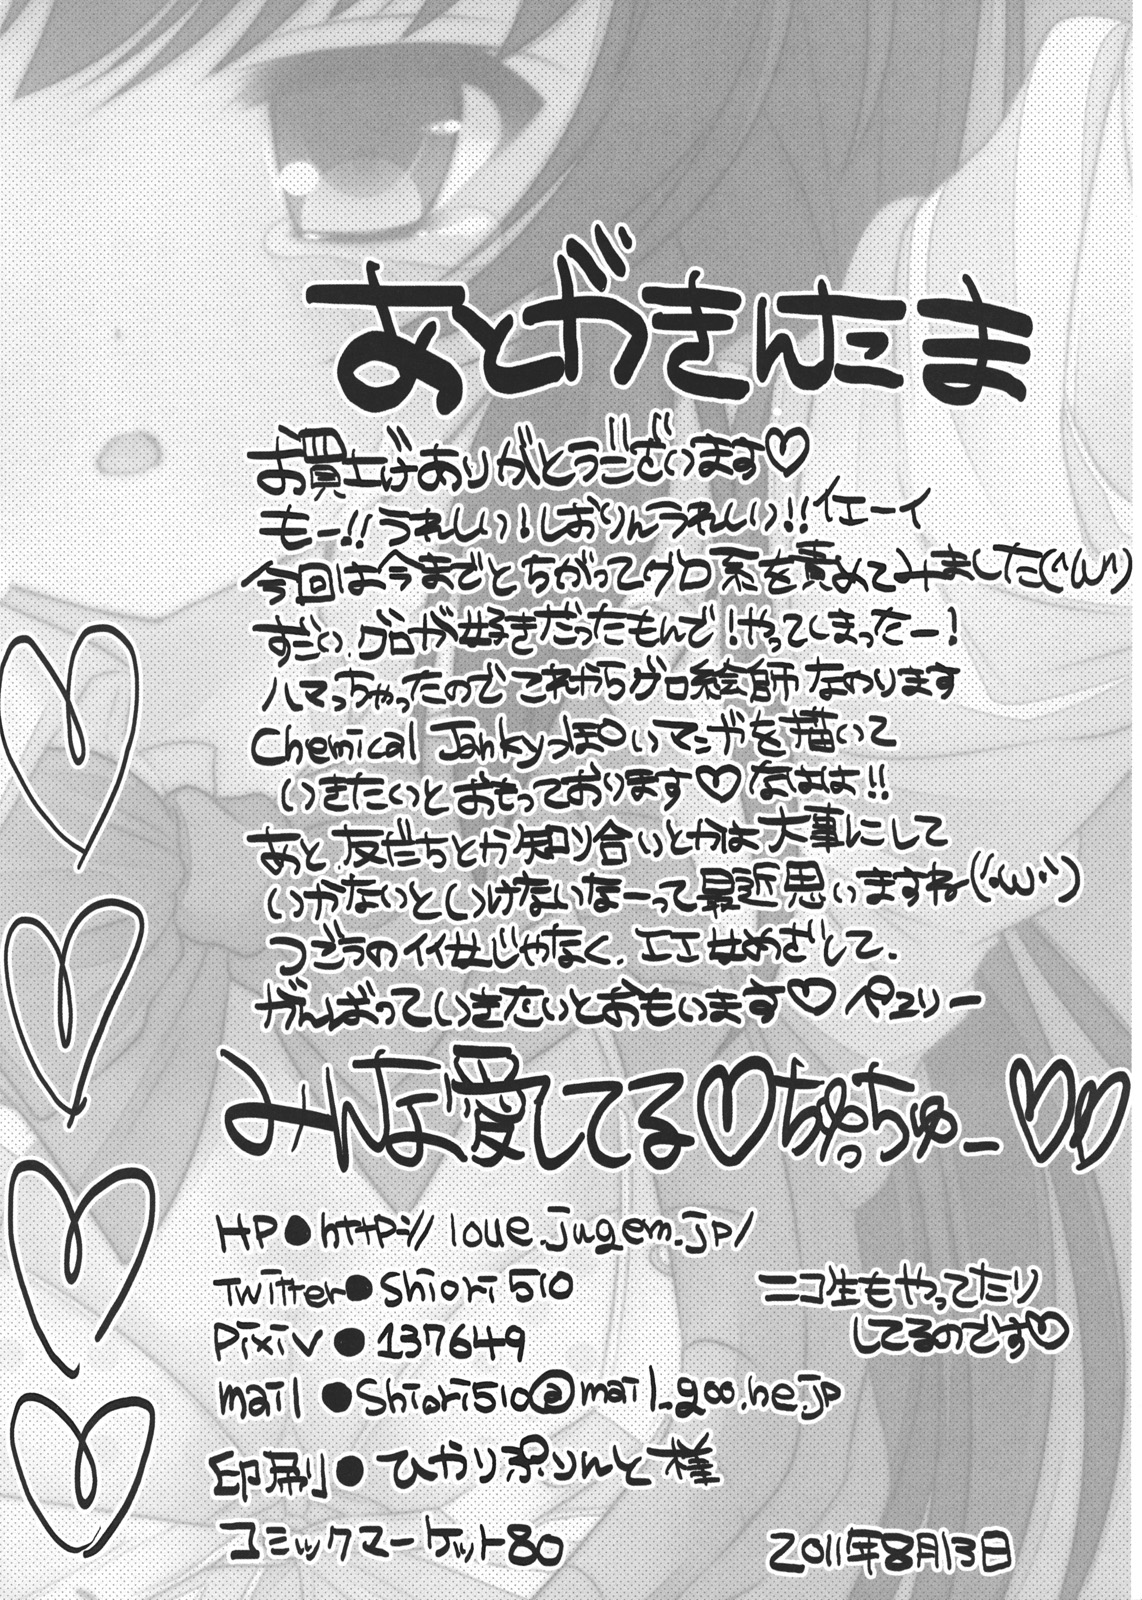 あとがきんたま
お買上げありがとうございます♡
もー!!うれしい!しおりんうれしい!!イエーイ
今回は今までとちがってグロ系を責めてみました(´・ω・`)
ずだい、グロが好きだったもんで!やってしまったー!
ハマっちゃったのでこれからグロ絵師なのります
Chemical Jankyっぽいマンガを描いて
いきたいとおもっております♡なはは!!
あと、友だちとか知り合いとかは大事にして
いかないといけないなーって最近思いますね(´・ω・`)
つごうのイイ女じゃなく、エエ女めざして、
がんばっていきたいとおもいます♡ペユリー
みんな愛してる♡ちゅっちゅー♡♡
HP●http://loue.jugem.jp/
Twitter●Shiori510
Pixiv●137649
mail●Shiori510@mail.goo.ne.jp
ニコ生もやってたり
してるのです♡
印刷●ひかりぷりんと様
コミックマーケット80
2011年8月13日